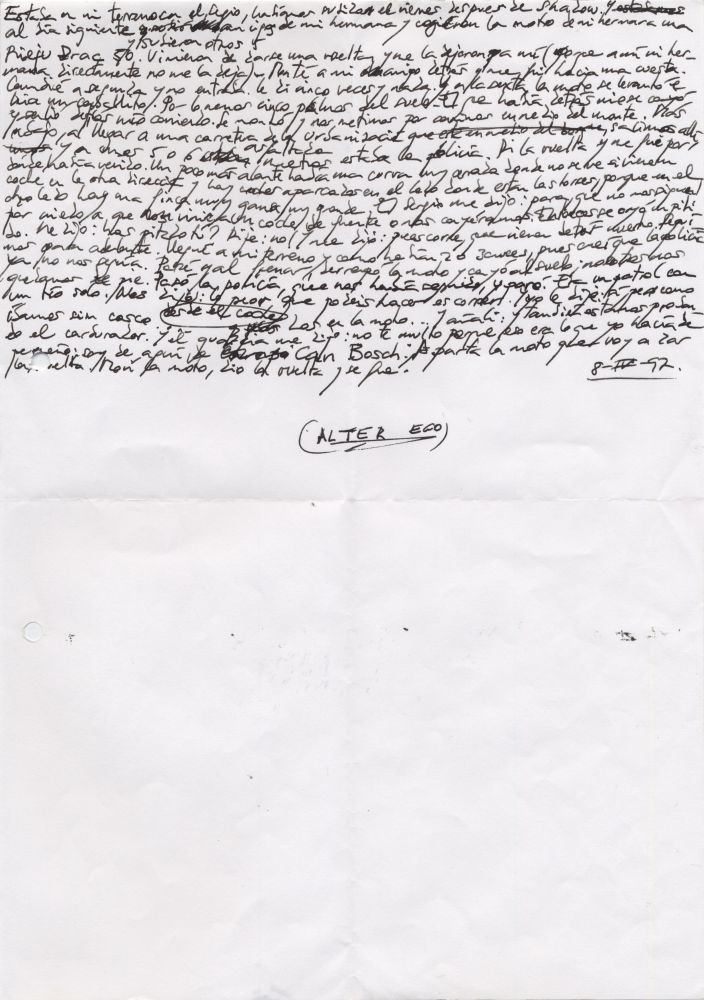 Estaba en mi terreno el Sergio, el viernes despues de
al día siguiente de mi hermana y cogieron la moto de mi hermana una
y subieron otros 5
Rieju Drac 50. Vinieron de darse una vuelta y me la dejaron a mí porque a mí mi her-
mana directamente no me la deja. Monté a mi amigo detrás y me fui hacia una cuesta.
Cambié a segunda y no entraba. Le di cinco veces y nada. Y a la sexta la moto se levantó e
hizo un caballito. Por lo menos cinco palmos del suelo. El que había detrás mío se cayó
y salió detrás mío corriendo. Se montó y nos metimos por caminos en medio del monte. Más
abajo, al llegar a una carretera de la urbanización salimos allí
y a unos 5 o 6 metros estaba la policía. Di la vuelta y me fui por
asfaltada
donde había venido. Un poco más alante había una curva muy cerrada donde no se ve si viene un
coche en la otra dirección y hay aparcados en el lado donde están las torres, porque en el
otro lado hay una finca muy grande. El Sergio me dijo: para, que no nos siguen
por miedo a que viniera un coche de frente o nos cayéramos. Entonces se oyó un piti-
do. Me dijo: has pitado tú? Dije: no! Me dijo: pues corre que vienen detrás nuestro. Segui-
mos para adelante. Llegué a mi terreno y como habían 20 pues creí que la policía
ya no nos seguía. Paré y al frenar, derrapó la moto y cayó al suelo; nosotros nos
quedamos de pie. Pasó la policía, que nos había seguido, y paró. Era un patrol con
un tío solo. Nos dijo: lo peor que podéis hacer es correr. Yo le dije: ya pero como
íbamos sin casco desde el coche y tres en la moto... Y añadí: y también estamos proban-
do el carburador. Y el guardia me dijo: no te multo porque eso era lo que yo hacía de
pequeño; soy de aquí, de Can Bosch. Aparta la moto que voy a dar
la vuelta. Aparté la moto, dio la vuelta y se fue.
8-IV-92.
(ALTER EGO)